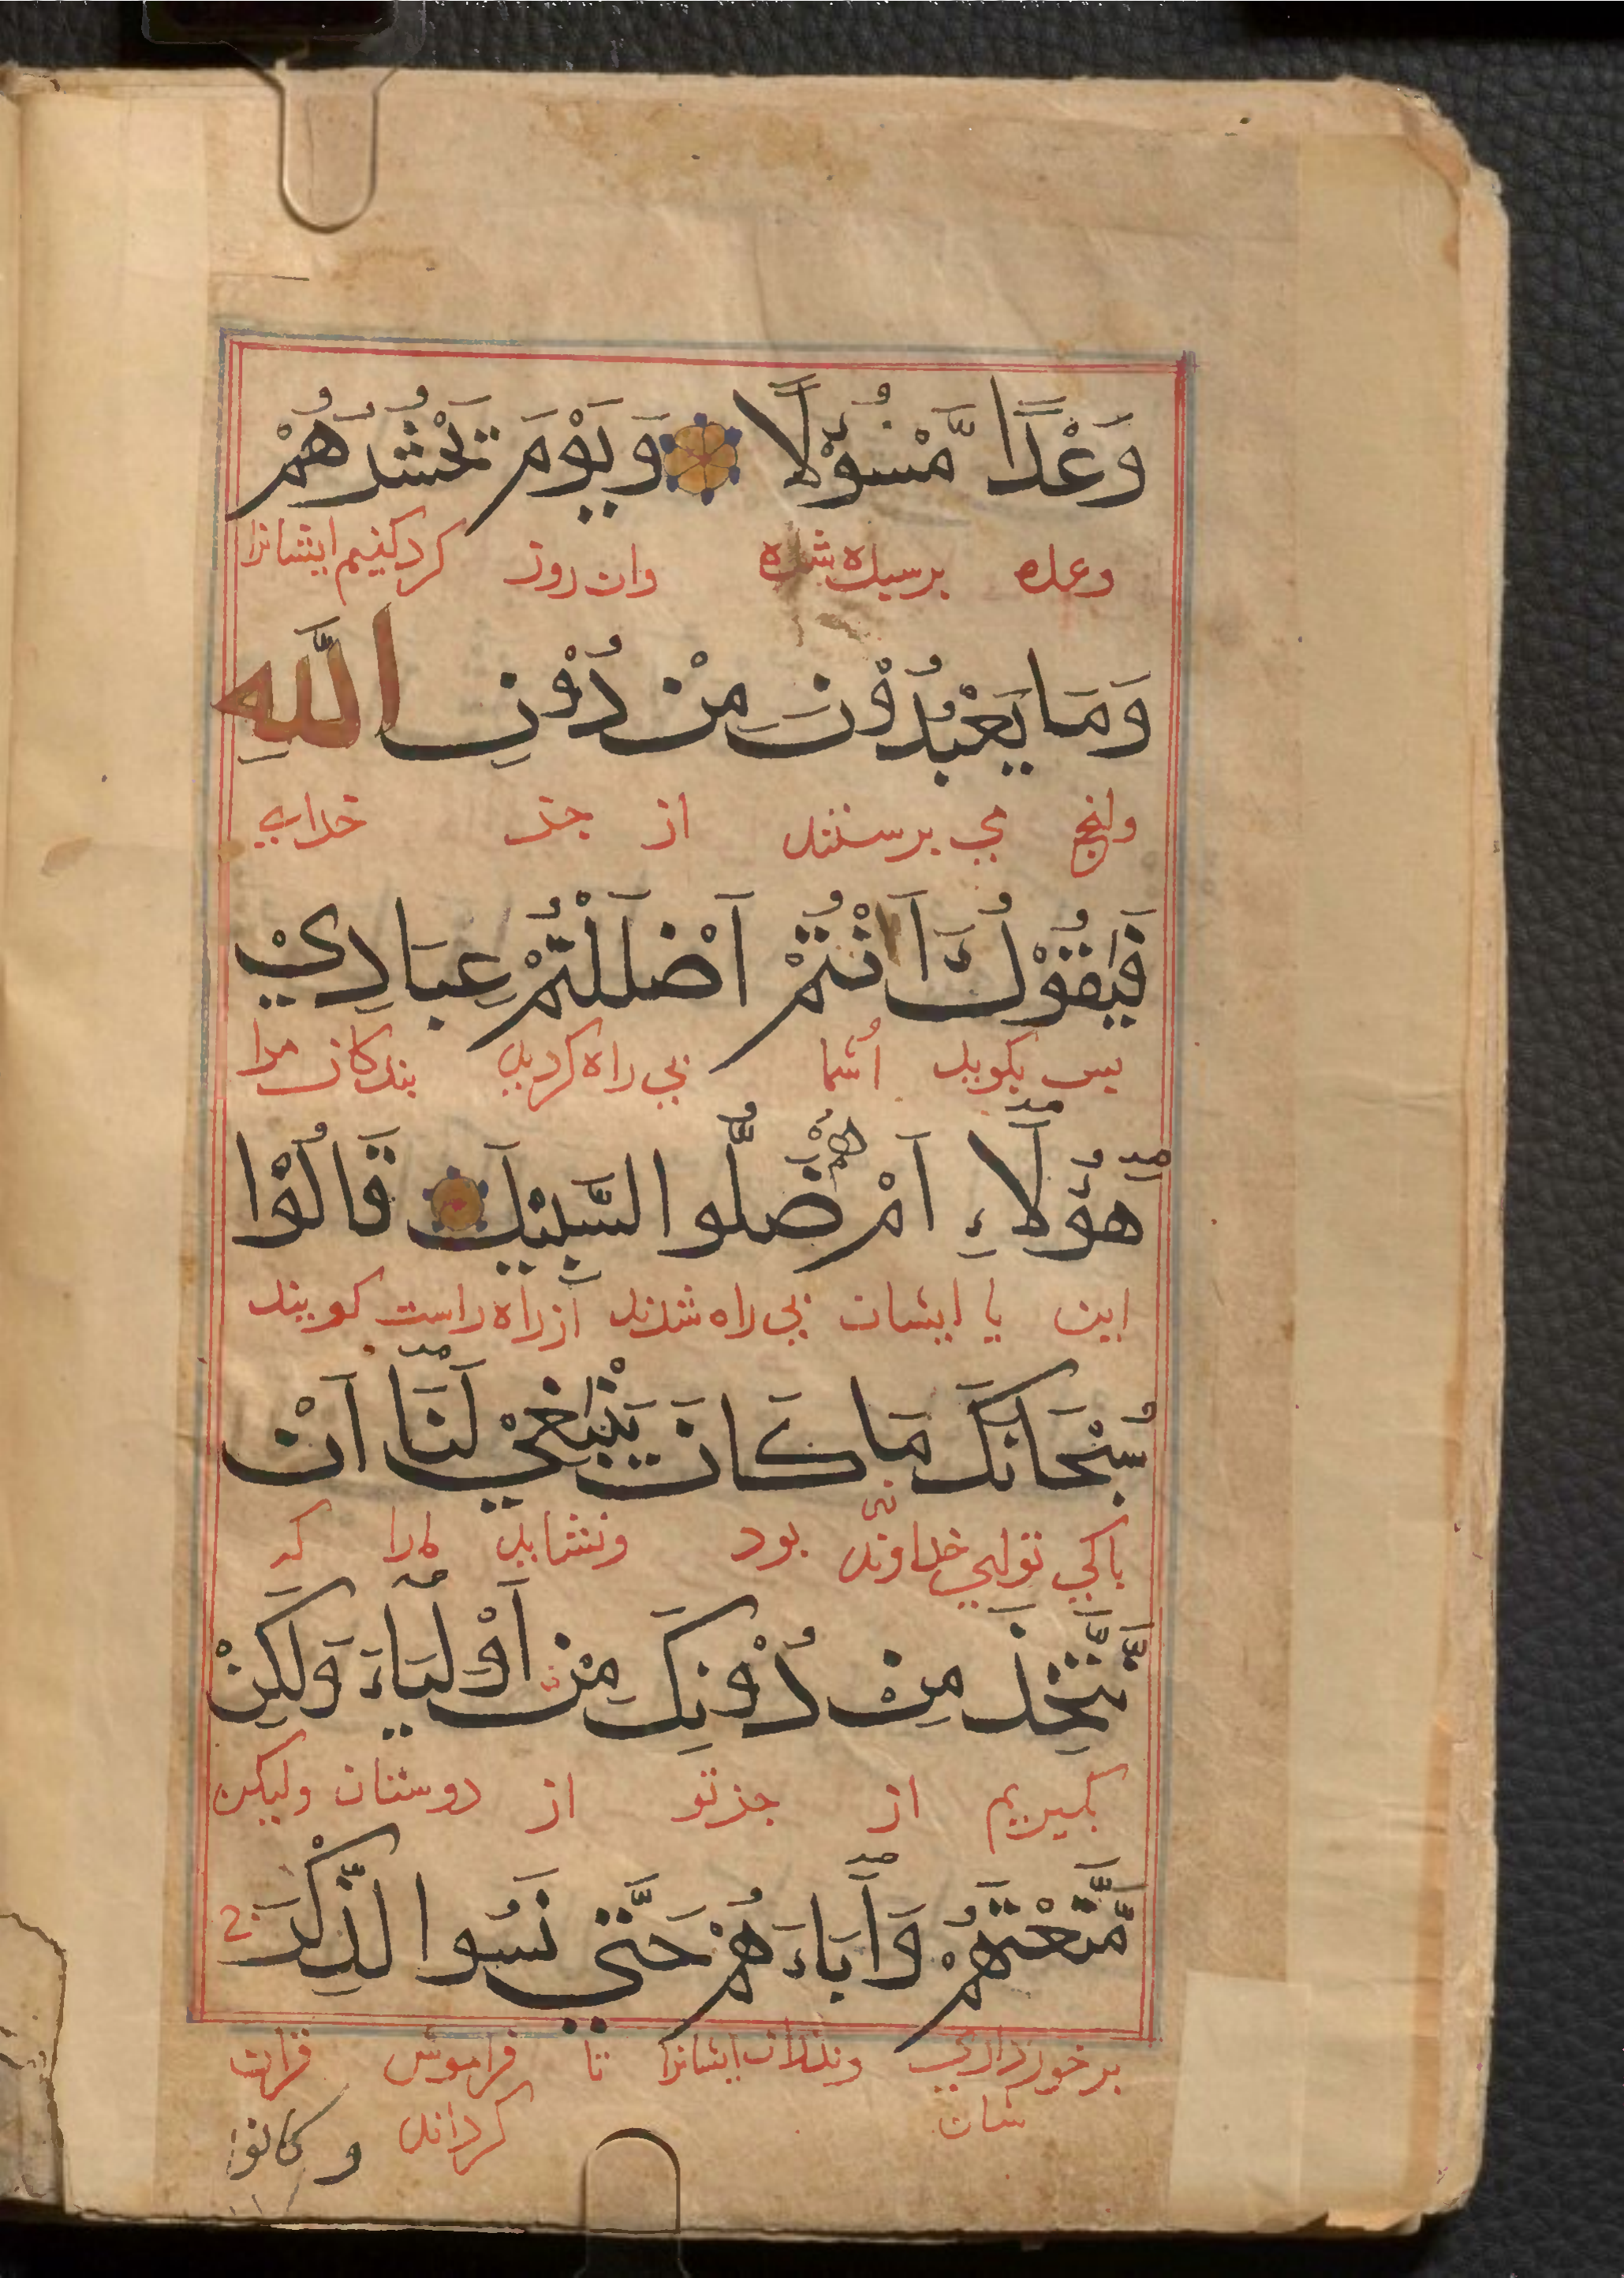 وَعْدًا مَّسْؤُلًا وَيَوْمَ نَحْشُرُهُمْ
وعده برسیده شده وان روز کرد کنیم ایشانرا
وَمَا يَعْبُدُوْنَ مِنْ دُوْنِ اللّٰهِ
وانچ می برستند از جز خدای
فَيَقُوْلُ ءَاَنْتُمْ اَضْلَلْتُمْ عِبَادِيْ
بس بکوید اشما بی راه کردید بندکان مرا
هٰٓؤُلَآءِ اَمْ هُمْ ضَلُّوا السَّبِيْلَ قَالُوْا
این یا ایشان بی راه شدند از راه راست کویند
سُبْحَانَكَ مَا كَانَ يَنْبَغِيْ لَنَآ اَنْ
باکی توایی خداوند نی بود ونشاید مارا که
نَّتَّخِذَ مِنْ دُوْنِكَ مِنْ اَوْلِيَآءَ وَلٰكِنْ
کیریم از جز تو از دوستان ولیکن
مَّتَّعْتَهُمْ وَاٰبَآءَهُمْ حَتّٰي نَسُوا الذِّكْرَ
برخورداری وبذران ایشانرا تا فراموش قران
شان کردند وكانوا